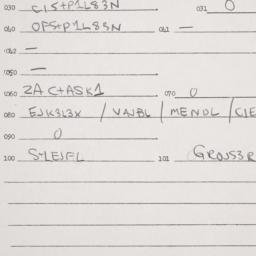 030 CIS+P1L83N 031 0
040 OPS+P1L83N 041 —
042 —
050 —
060 2AC+ASK1 070 0
080 EJK3L3X / VAJBL / MENDL / CIE
090 0
100 101 GROUS3R